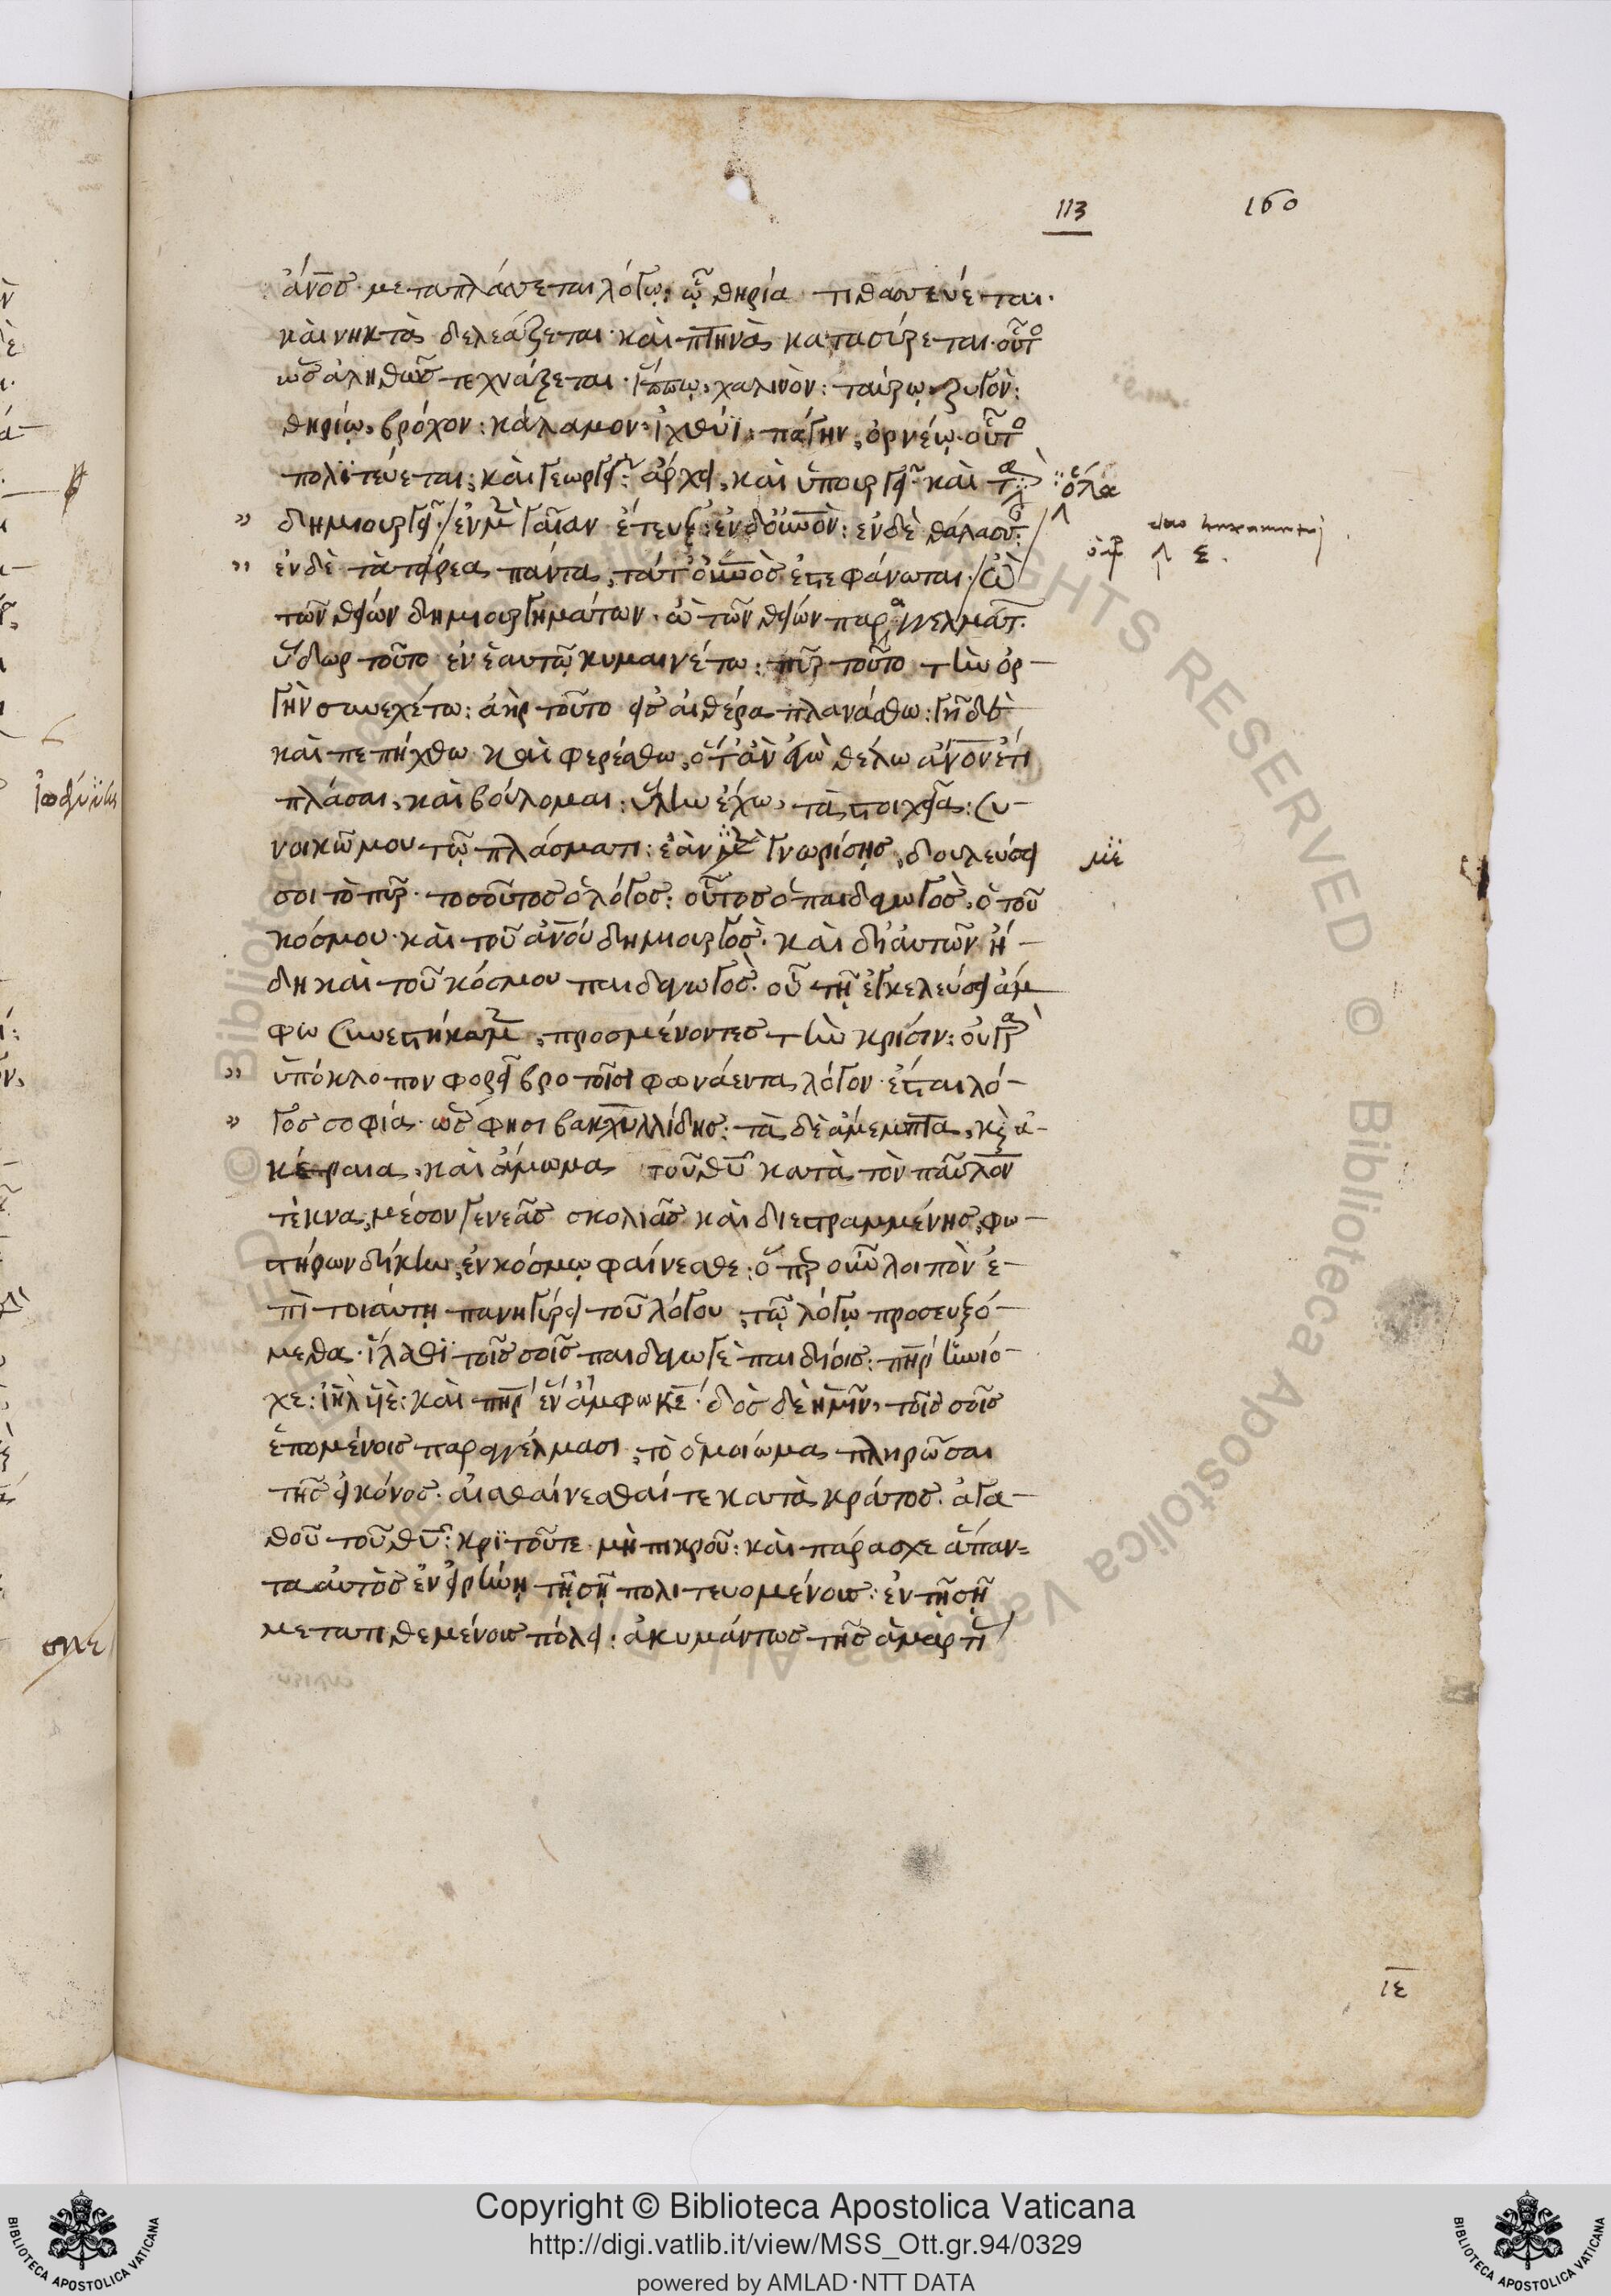 113 160
ἄνοσ· μεταπλάσσεται λόγω· ὧ θηρία τιθασσεύεται·
καὶ νηκτὰ δελεάζεται· καὶ πτηνὰ κατασύρεται· οὗτο
ὡσ ἀληθῶσ τεχνάζεται· ἵππω, χαλινὸν: ταύρω, ζυγόν:
θηρίω, βρόχον: κάλαμον, ἰχθύϊ: πάγην, ὀρνέω· οὗτο
πολιτεύεται, καὶ γεωργεῖ: ἄρχει, καὶ ὑπουργεῖ· καὶ τὰ ὅλα
δημιουργεῖ· ἐν μὲν γαῖαν ἔτευξ: ἐν δ' οὐνὸν: ἐν δὲ θάλασσ:
ἐν δὲ τὰ τείρεα πάντα, τά τ' οὐνὸσ ἐστεφάνωται· ὢ
τῶν θείων δημιουργημάτων· ὢ τῶν θείων παραγγελμάτ.
ὕδωρ τοῦτο ἐν ἑαυτῶ κυμαινέτω: πῦρ τοῦτο τὴν ὀρ-
γὴν συνεχέτω: ἀὴρ τοῦτο εἰσ αἰθέρα πλανάσθω: γῆ δὲ
καὶ πεπήχθω καὶ φερέσθω, ὅταν ἐγὼ θέλω ἄνον ἔτι
πλάσαι, καὶ βούλομαι: ὕλην ἔχω, τὰ στοιχεῖα: συ-
νοικῶ μου τῶ πλάσματι: ἐάν με γνωρίσησ, δουλεύσει με
σοι τὸ πῦρ· τοσοῦτοσ ὁ λόγοσ: οὗτοσ ὁ παιδαγωγὸσ, ὁ τοῦ
κόσμου καὶ τοῦ ἀνοῦ δημιουργόσ· καὶ δι' αὐτῶν ἤ-
δη καὶ τοῦ κόσμου παιδαγωγόσ· οὗ τῆ ἐγκελεύσει ἄμ
φω συνεστήκαμεν, προσμένοντεσ τὴν κρίσιν: οὐ γὰρ
ὑπόκλοπον φορεῖ βροτοῖσι φωνάεντα λόγον· ἔσται λό-
γοσ σοφία· ὥσ φησι βακχυλλίδησ: τὰ δὲ ἄμεμπτα, καὶ ἀ-
κέραια, καὶ ἄμωμα τοῦ θῦ κατὰ τὸν παῦλον
τέκνα, μέσον γενεᾶσ σκολιᾶσ καὶ διεστραμμένησ, φω-
στήρων δίκην, ἐν κόσμω φαίνεσθε: ὅπερ οὖν λοιπὸν ἐ-
πὶ τοιαύτη πανηγύρει τοῦ λόγου, τῶ λόγω προσευξό-
μεθα· ἵλαθι τοῖσ σοῖσ παιδαγωγὲ παιδίοισ: πηρ ἡνιό-
χε: ἰηλ υἱὲ: καὶ πηρ ἓν ἄμφω κε· δὸσ δὲ ἡμῖν, τοῖσ σοῖσ
ἑπομένοισ παραγγέλμασι, τὸ ὁμοίωμα πληρῶσαι
τῆσ εἰκόνοσ· αἰσθαίνεσθαί τε κατὰ κράτοσ· ἀγα-
θοῦ τοῦ θῦ: κριτοῦτε μὴ πικροῦ: καὶ πάρασχε ἅπαν-
τα αὐτὸσ ἐν εἰρήνη τῆ σῆ πολιτευομένουσ: ἐν τῆ σῆ
μετατιθεμένουσ πόλει: ἀκυμάντωσ τῆσ ἁμαρτί
ιε
Copyright © Biblioteca Apostolica Vaticana
http://digi.vatlib.it/view/MSS_Ott.gr.94/0329
powered by AMLAD·NTT DATA